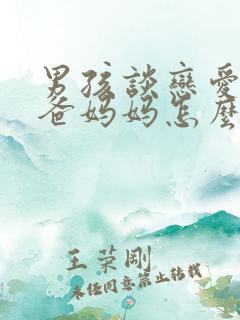 男孩談戀愛
爸媽媽怎麼
王荣剛
未经同意禁止转载